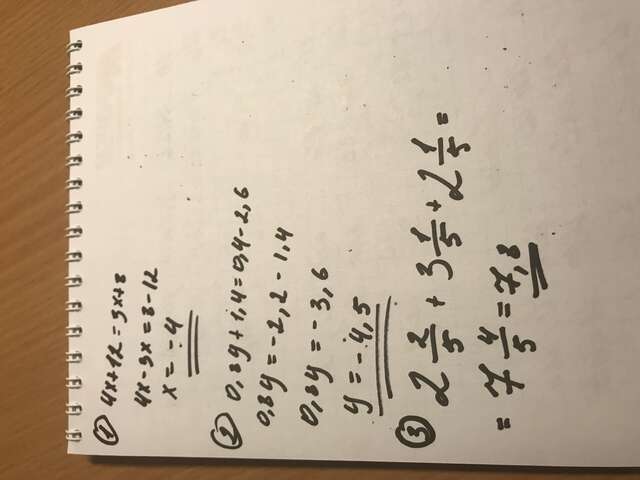 ① 4x+12=3x+8
4x-3x=8-12
x=-4
② 0,8y+1,4=0,4-2,6
0,8y=-2,2-1,4
0,8y=-3,6
y=-4,5
③ 2 2/5 + 3 1/5 + 2 1/5 =
= 7 4/5 = 7,8